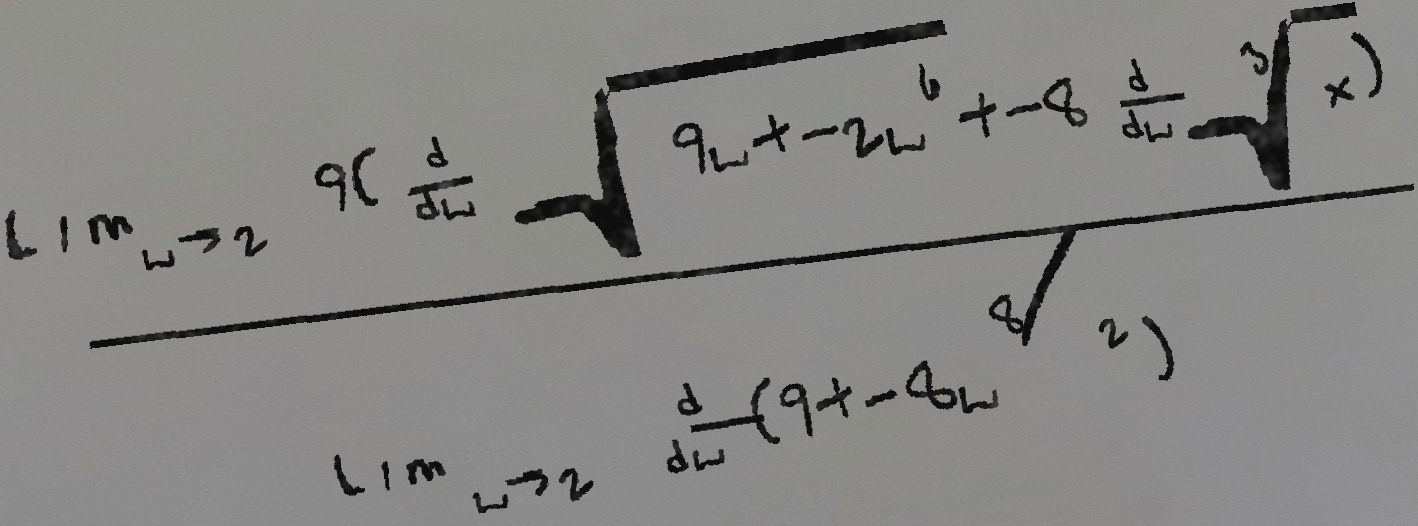 lim w→2 9( d/dw √(9w + -2w^6) + -8 d/dw ∛x )
lim w→2 d/dw (9 + -8w^(8/2))